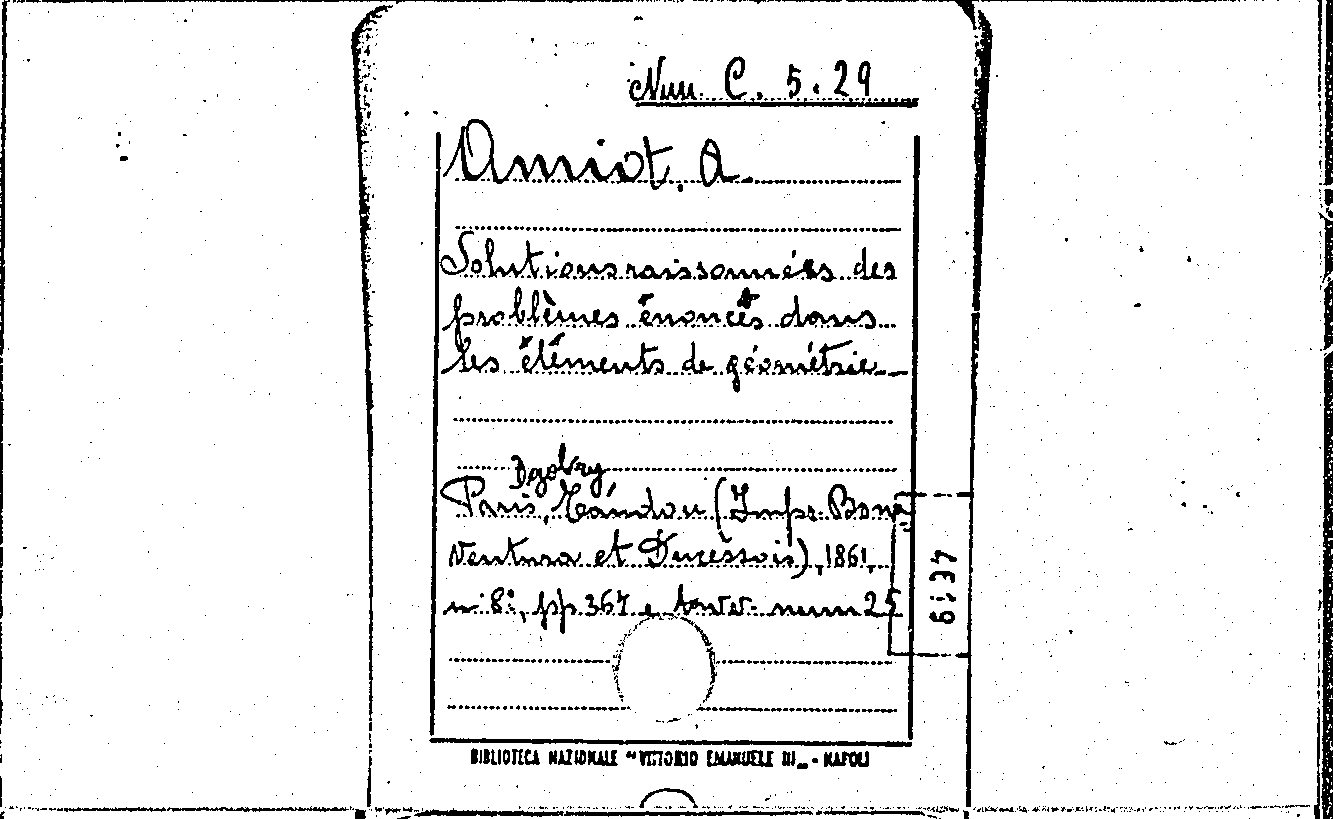 Num. C. 5. 29
Amiot, A.
Solutions raissonnées des
problèmes énoncés dans
les éléments de géométrie
Dzobry
Paris, Tándou (Impr. Bona
ventura et Ducessois), 1861,
in 8º, pp. 367 e tavv. num 25
BIBLIOTECA NAZIONALE "VITTORIO EMANUELE III„ - NAPOLI